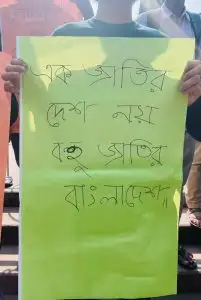 এক জাতির
দেশ নয়
বহু জাতির
বাংলাদেশ॥